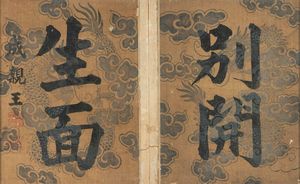 別開
生面
成親王